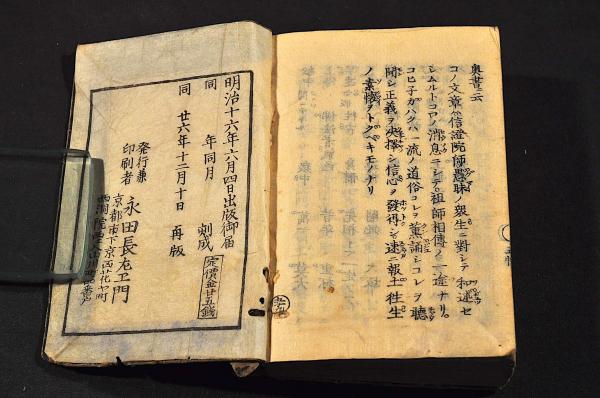 奥書云
コノ文章ハ信證院師愚昧ノ衆生ニ對シテ和述セ
シムルトコロノ消息ニシテ祖師相傳ノ一途ナリ
コヒ子ガハクハ一流ノ道俗コレヲ薫誦シコレヲ聽
聞シ正義ヲ決擇シ信心ヲ發得シ速ニ報土往生
ノ素懷ヲトグベキモノナリ
明治十六年六月四日出版御届
同 年同月 刻成
定價金廿五錢
同 廿六年十二月十日 再版
發行兼
印刷者
永田長左エ門
京都市下京区西花屋町
西洞院